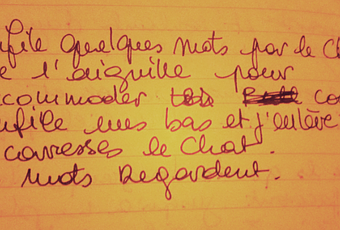 file quelques mots par le c
e l'aiguille pour
commoder co
nfile mes bas et j'enlève
caresses le chat.
mots Regardent.